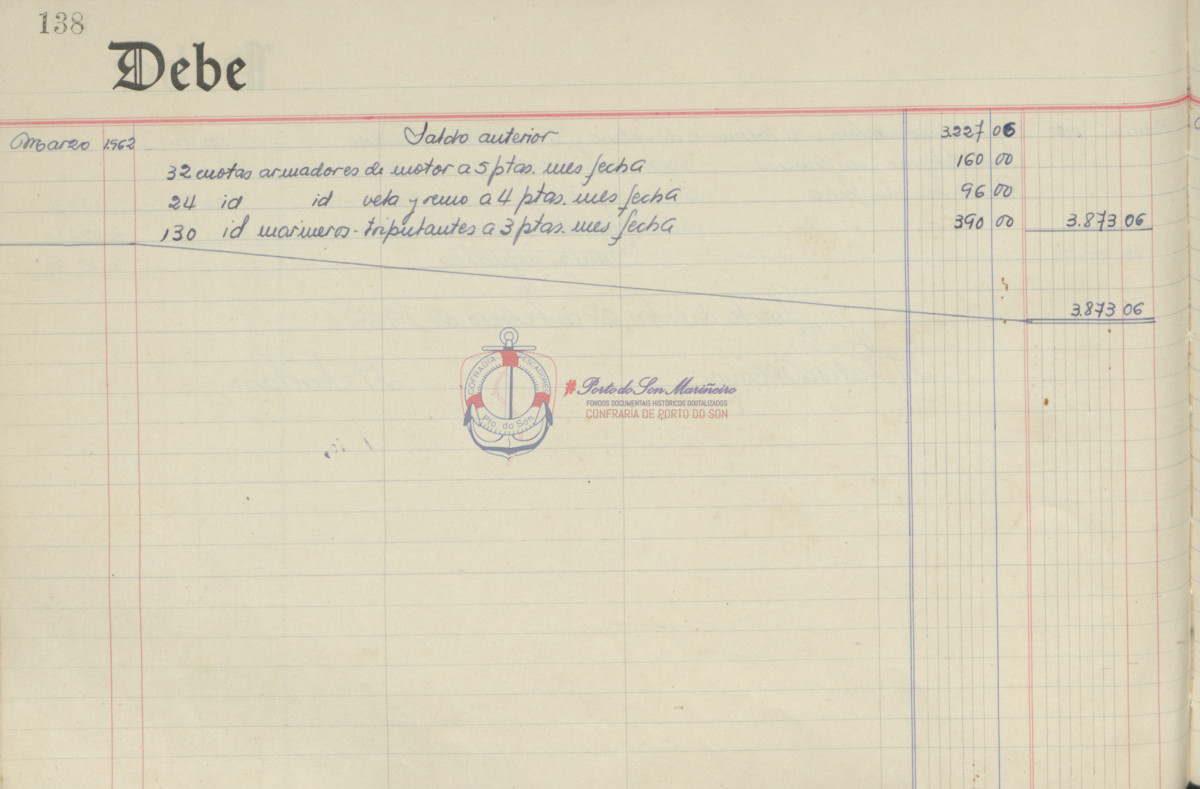 138
Debe
Marzo 1962 Saldo anterior 3.227 06
32 cuotas armadores de motor a 5 ptas. mes fecha 160 00
24 id id vela y remo a 4 ptas. mes fecha 96 00
130 id marineros-tripulantes a 3 ptas. mes fecha 390 00 3.873 06
3.873 06
COFRADIA PESCADORES
Pto. do Son
# Porto do Son Mariñeiro
FONDOS DOCUMENTAIS HISTÓRICOS DIXITALIZADOS
CONFRARIA DE PORTO DO SON